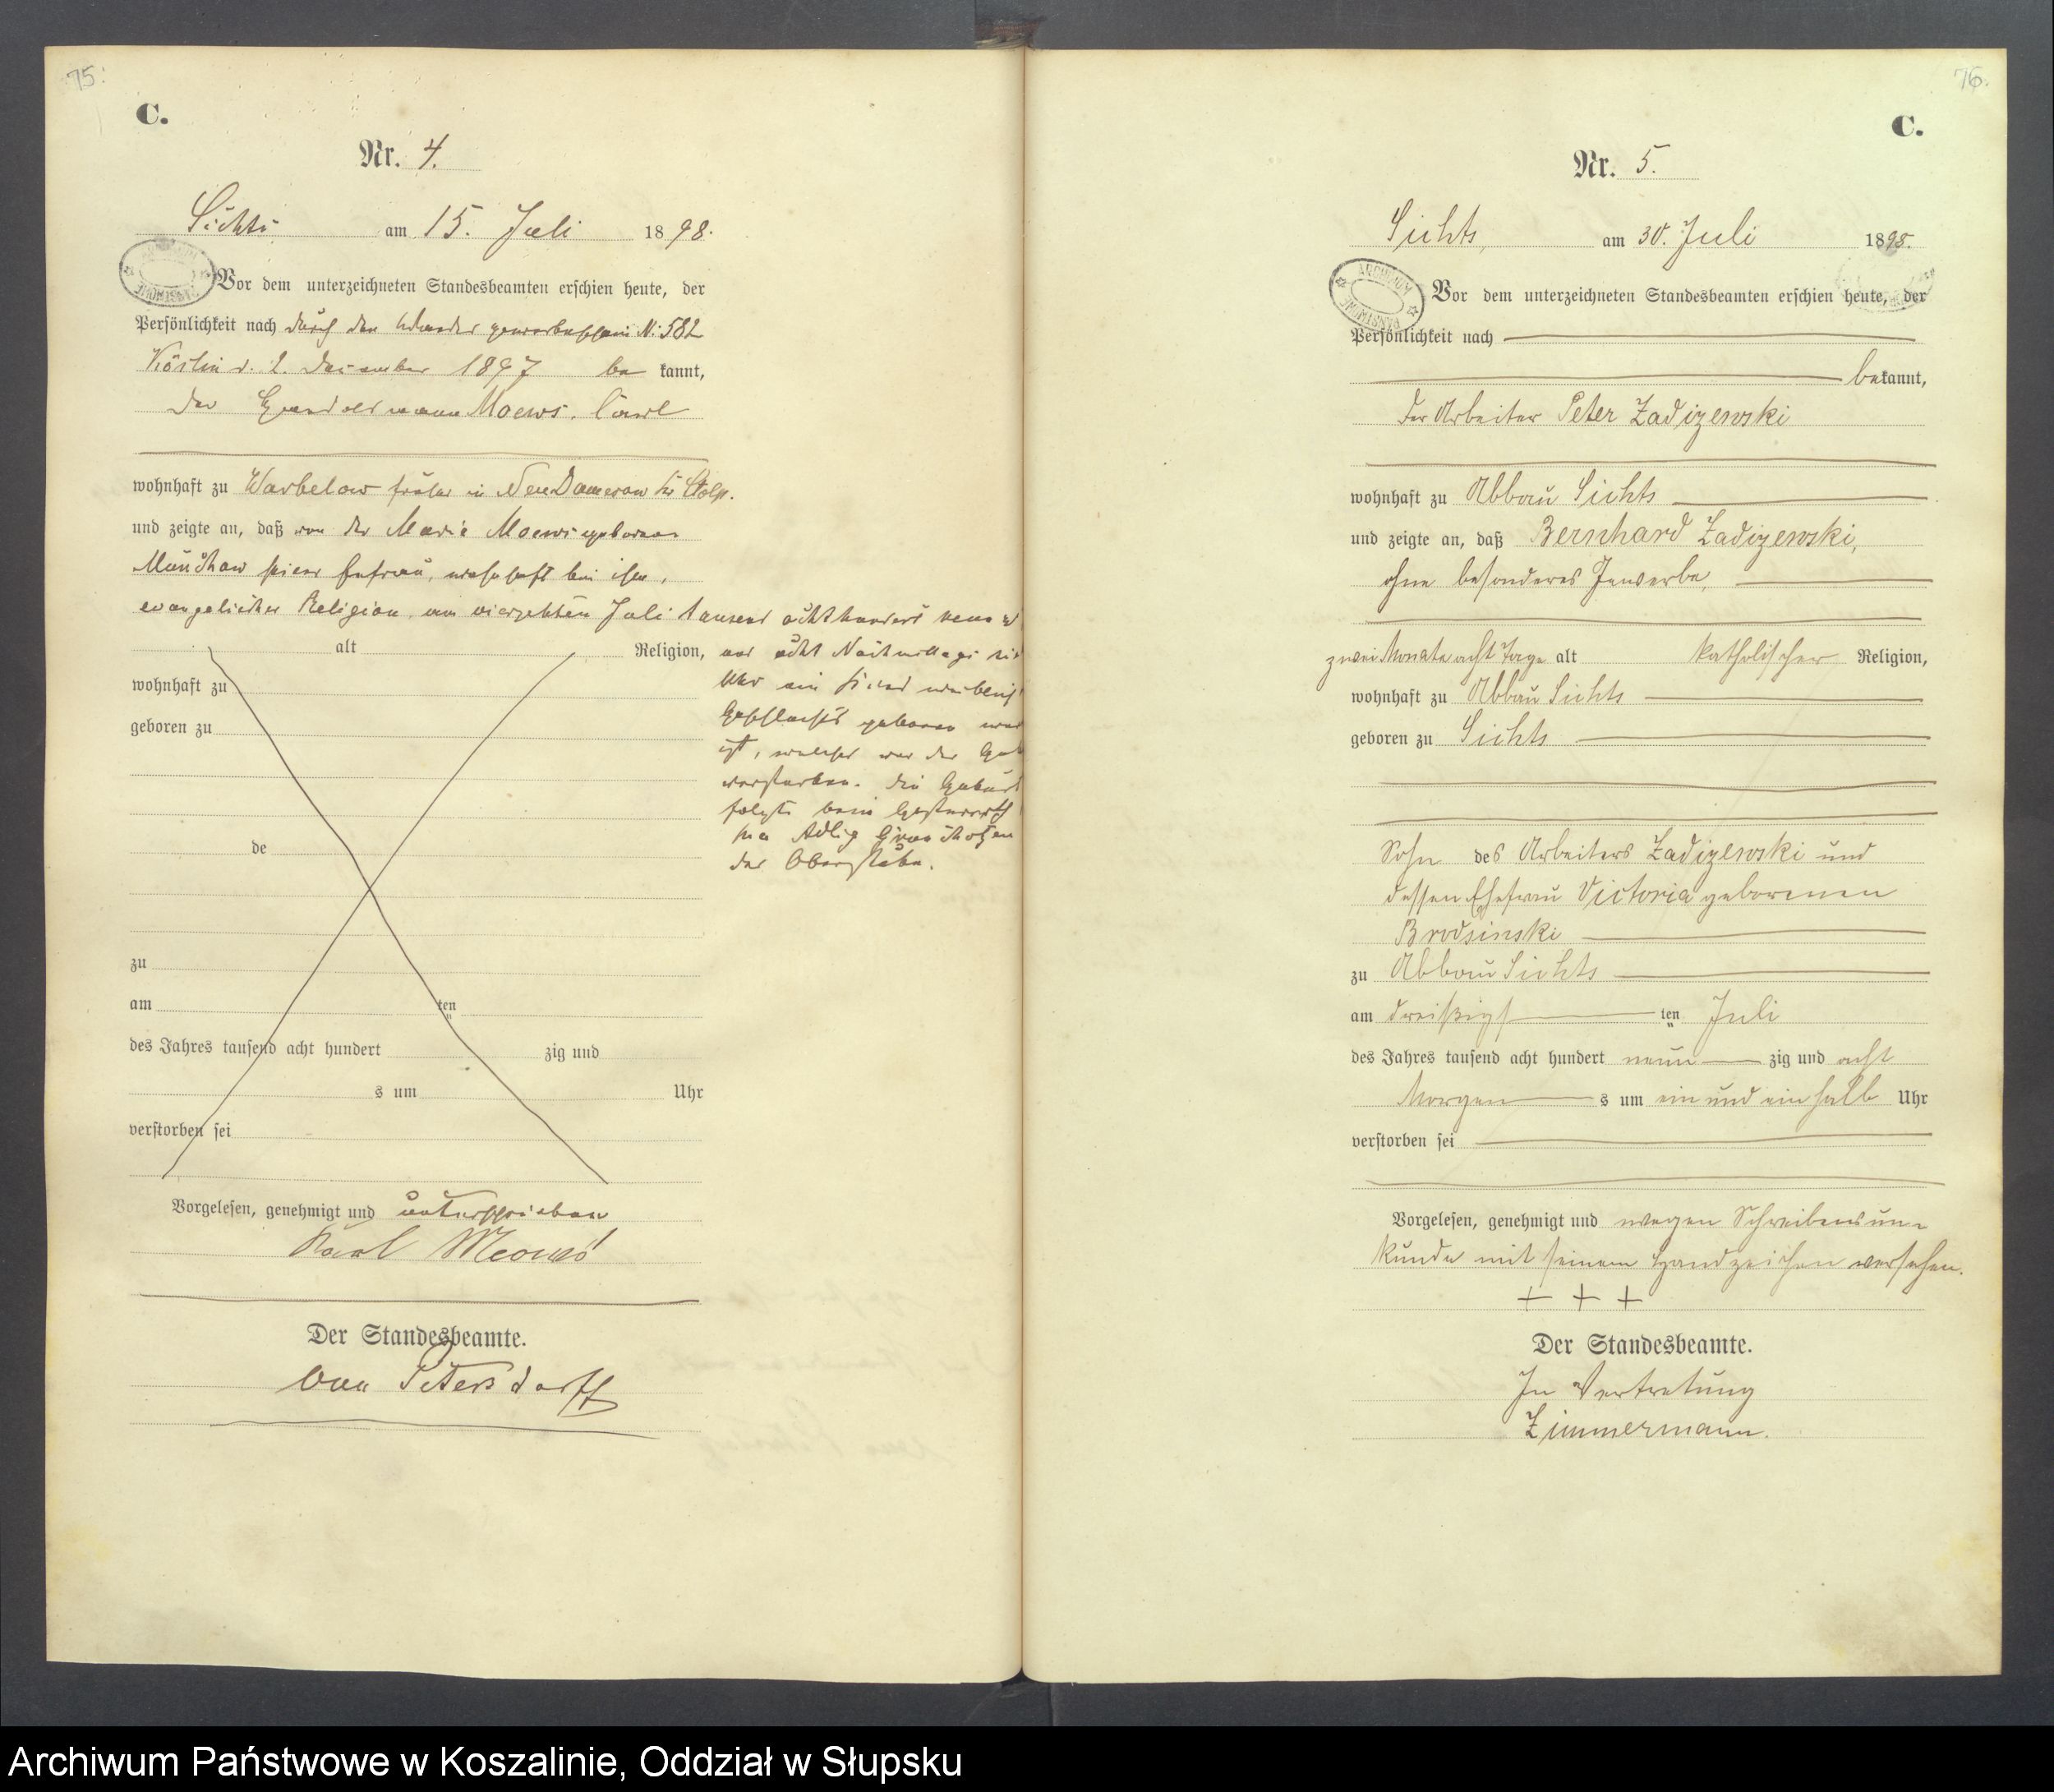 75.
C.
Nr. 4.
Sichts am 15. Juli 1898.
Vor dem unterzeichneten Standesbeamten erschien heute, der
Persönlichkeit nach durch den Wander gewerbeschein N: 582
Köslin d. 2. December 1897 be kannt,
der Handelsmann Moews. Carl
wohnhaft zu Warbelow früher in Neu Damerow Kr Stolp.
und zeigte an, daß von der Marie Moews geboren
Münchow seiner Ehefrau, wohnhaft bei ihm,
evangelischer Religion, am vierzehnten Juli tausend acht hundert neun
alt Religion, und acht Nachmittags
wohnhaft zu Uhr ein Kind weiblich
geboren zu Geschlechts geboren wor
ist, welches vor der Geb
verstorben. Die Geburt
folgte beim
de der Oberstube.
zu
am ten
des Jahres tausend acht hundert zig und
s um Uhr
verstorben sei
Vorgelesen, genehmigt und unterschrieben
Karl Moews
Der Standesbeamte.
von Petersdorff
76.
C.
Nr. 5.
Sichts, am 30. Juli 1898.
Vor dem unterzeichneten Standesbeamten erschien heute, der
Persönlichkeit nach
bekannt,
der Arbeiter Peter Zadizewski
wohnhaft zu Abbau Sichts
und zeigte an, daß Bernhard Zadizewski,
ohne besonderes Gewerbe,
zwei Monate acht Tage alt katholischer Religion,
wohnhaft zu Abbau Sichts
geboren zu Sichts
Sohn des Arbeiters Zadizewski und
dessen Ehefrau Victoria geborenen
Brodsinski
zu Abbau Sichts
am dreißigs ten Juli
des Jahres tausend acht hundert neun zig und acht
Morgen s um ein und ein halb Uhr
verstorben sei
Vorgelesen, genehmigt und wegen Schreibensun-
kunde mit seinem Handzeichen versehen.
+ + +
Der Standesbeamte.
In Vertretung
Zimmermann.
Archiwum Państwowe w Koszalinie, Oddział w Słupsku